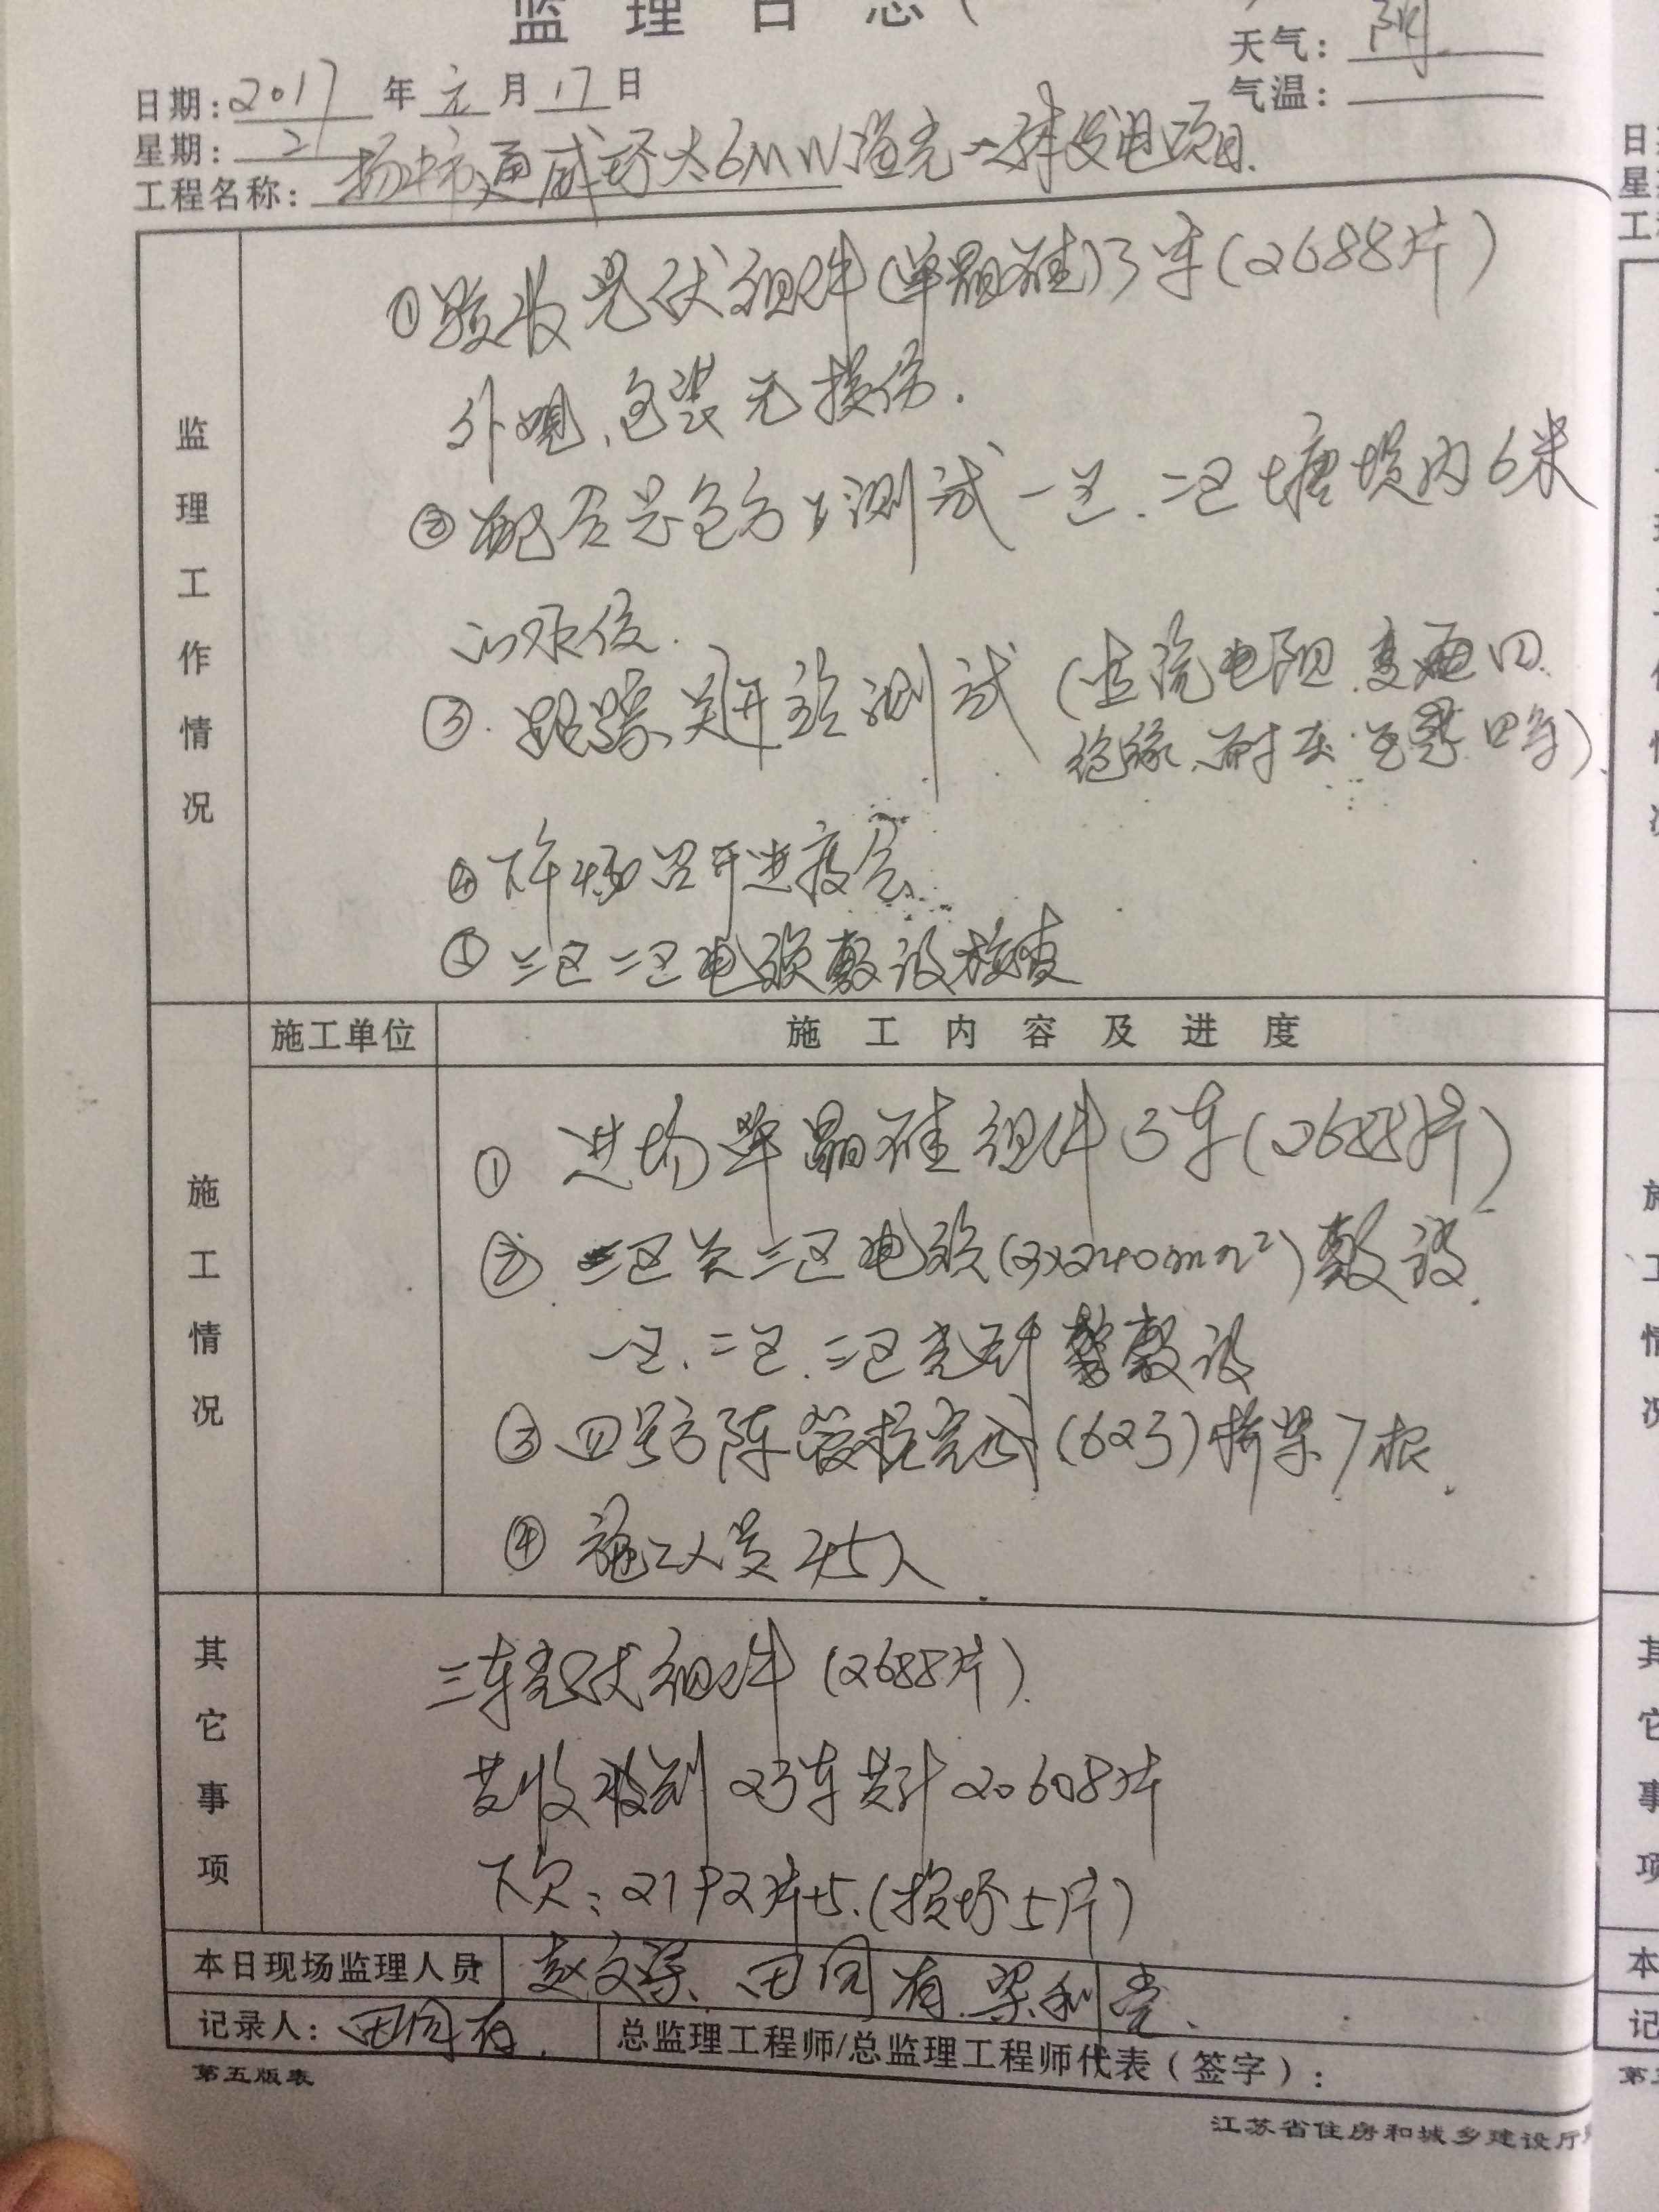 监理日志(
天气: 阴
日期: 2017 年 元 月 17 日
气温:
星期: 二
工程名称: 扬中市通威 太6MW渔光一体发电项目.
监理工作情况
①验收光伏组件(单晶硅)3车(2688片)
外观、包装无损伤.
②配合总包方 测试一区.二区塘埂内6米
水位.
③.跟踪 开 测试(直流电阻.变
绝缘.耐压 )
④下午 召开进度会.
⑤三区二区电缆敷设检查
施工单位
施工内容及进度
施工情况
① 进场单晶硅组件3车(2688片)
② 三区 三区电缆(3x240mm²)敷设.
一区.二区.三区光纤敷设
③四号方阵管桩完成(623)桥架7根.
④ 施工人员45人.
其它事项
三车光伏组件(2688片).
共收到23车共计20608片
下欠:2192片+5.(损坏5片)
本日现场监理人员 赵文 . 田同有.梁利
记录人: 田同有.
总监理工程师/总监理工程师代表(签字):
第五版表
江苏省住房和城乡建设厅
日
星
工
施
工
情
况
其
它
事
项
本
记
第